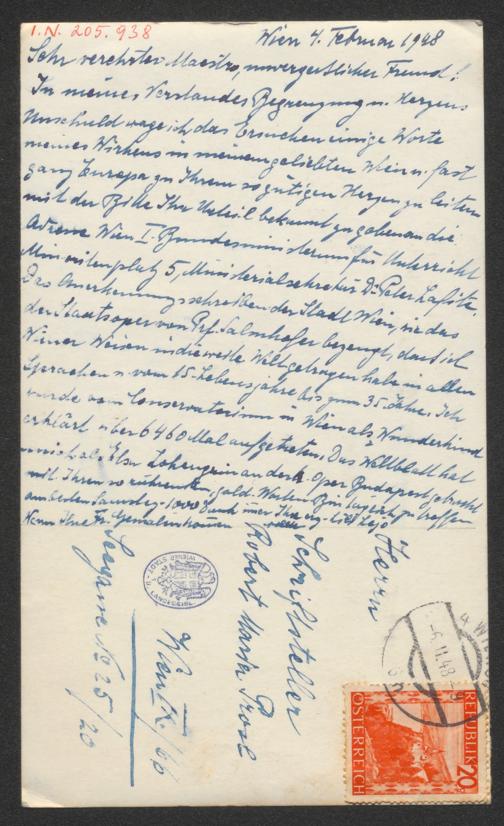 I.N. 205.938
Wien 4. Februar 1948
Sehr verehrter Maestro, unvergesslicher Freund!
In meines Verstandes Begrenzung u. Herzens
Unschuld wage ich, das Ersuchen einige Worte
meines Wirkens in meinem geliebten Wien u. fast
ganz Europa zu Ihrem so gütigen Herzen zu leiten
mit der Bitte Ihr Urteil bekannt zu geben an die
Adresse Wien I. Bundesministerium für Unterricht
Minoritenplatz 5, Ministerialsekretär Dr. Peter Lafite.
Das Anerkennungsschreiben der Stadt Wien, wie das
der Staatsoper von Prf. Salmhofer bezeugt, dass ich
Wiener Weisen in die weite Welt getragen habe in allen
Sprachen v. vom 15. Lebensjahre bis zum 35. Jahre. Ich
wurde vom Conservatorium in Wien als Wunderkind
erklärt über 6460 Mal aufgetreten. Das Weltblatt hat
mich als Elsa Lohengrin an der k. Oper Budapest gebracht
mit Ihren so rührenden gold. Worten. Bin täglich zu treffen
am besten 1000 Dank
Wenn Ihre Fr. Gemahlin
Herrn
Schriftsteller
Robert Maria Prosl
Wien IX/66
Seegasse No 25/20
WIENER STADT- U. LANDESBIBL.
WIEN
-6.II.48
REPUBLIK
ÖSTERREICH
20g